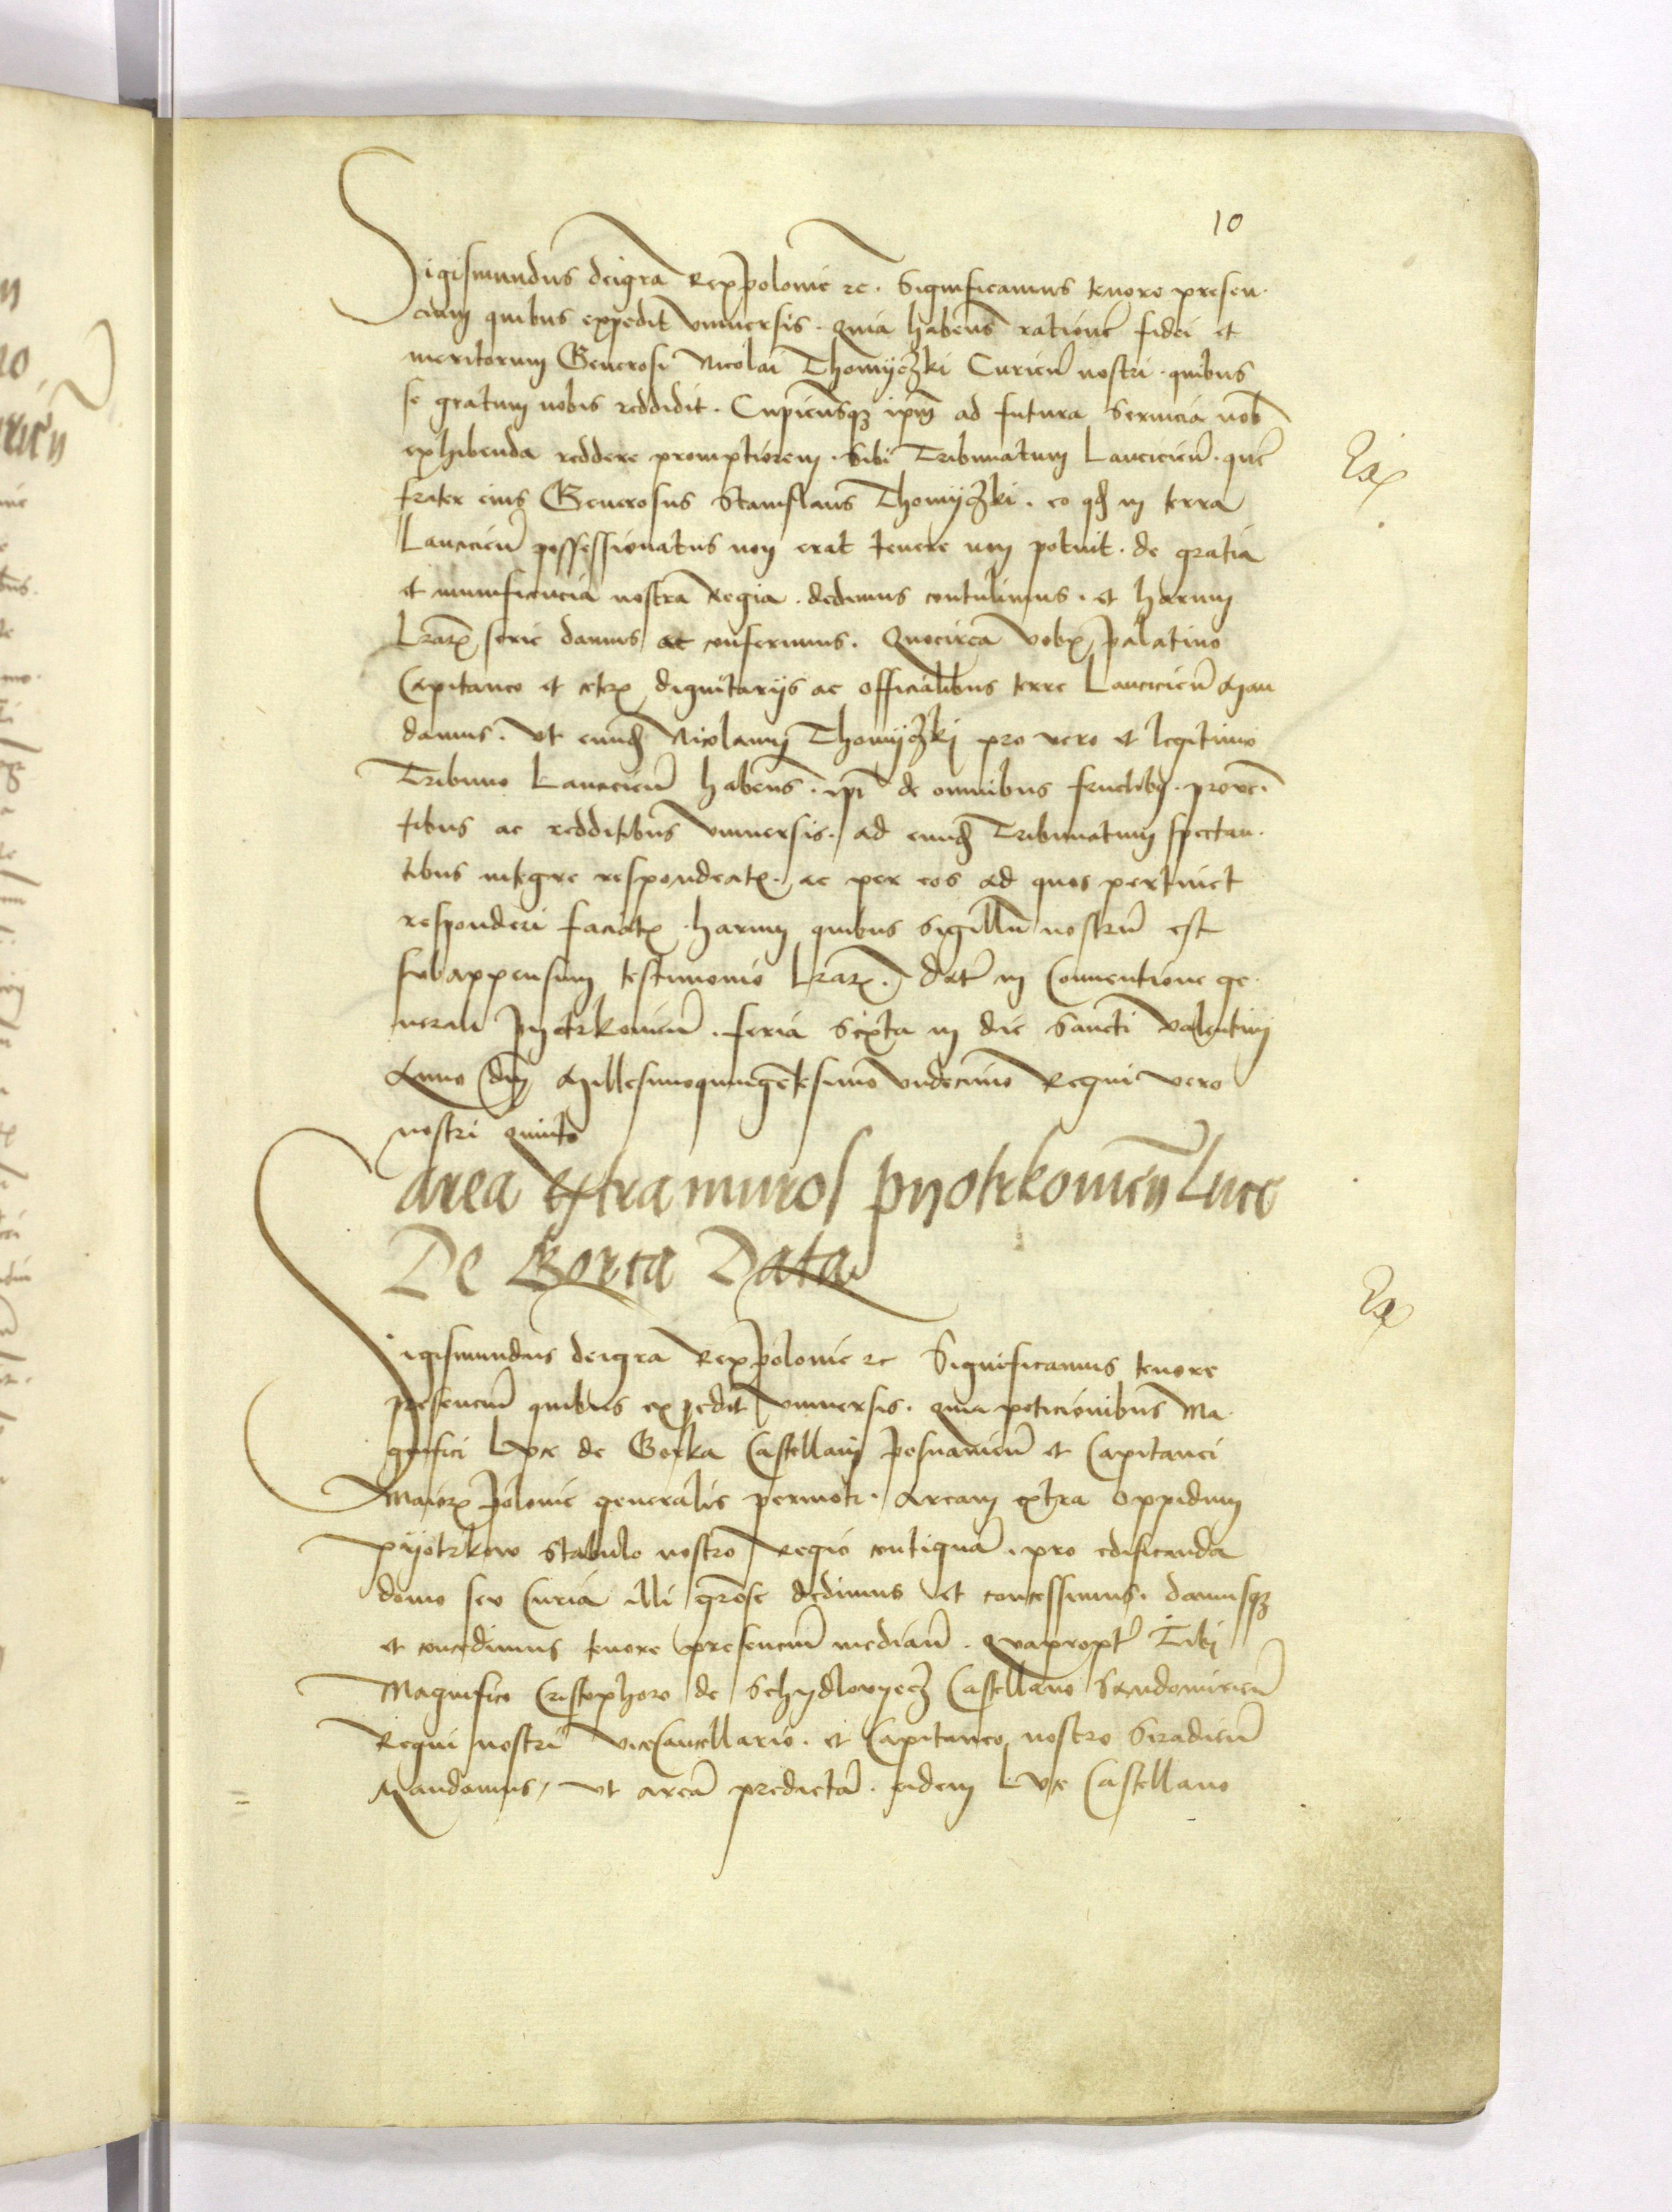 10
Sigismundus dei gra Rex Polonie zc. Significamus tenore presen-
cium quibus expedit universis. quia habens rationem fidei et
meritorum Generosi Nicolai Thomyczki Curien nostri. quibus
se gratum nobis reddidit. Cupiensqz ipm ad futura servicia nob
exhibenda reddere promptiorem. Sibi Tribunatum Lancicien. que
frater eius Generosus Stanislaus Thomyczki. eo qd in terra
Lancicien possessionatus non erat tenere non potuit. de gratia
et munificencia nostra Regia. dedimus contulimus. et harum
lrarum serie damus ac conferimus. Quocirca vobis palatino
Capitaneo et ceteris dignitariis ac officialibus terre Lancicien Man
damus. ut eundem Nicolaum Thomyczki pro vero et legitimo
Tribuno Lancicien habens. ipi de omnibus fructibq. proven
tibus ac redditibus universis. ad eundem Tribunatum spectan-
tibus integre respondeatis. ac per eos ad quos pertinet
responderi faciatis. harum quibus Sigillu nostru est
subappensum testimonio lrarum. Dat in Conventione ge-
nerali Pyotrkovien. feria Sexta in die Sancti Valentini
Anno Dni Millesimoquingetesimo undecimo Regni vero
nostri quinto
Area extra muros pyotrkovien Luce
De Gorca Data
Sigismundus dei gra Rex Polonie zc Significamus tenore
presenciu quibus expedit universis. quia peticionibus Ma-
gnifici Luce de Gorka Castellani Posnanien et Capitanei
Maioris Polonie generalis permoti. Aream extra Oppidum
Pyotrkow Stabulo nostro Regio contigua. pro edificanda
domo seu Curia illi graose dedimus et concessimus. damusqz
et concedimus tenore presenciu median. Quapropt Tibi
Magnifico Cristophoro de Schydlovyecz Castellano Sendomirien
Regni nostri ViceCancellario. et Capitaneo nostro Siradien
Mandamus, ut area predicta. eidem Luce Castellano